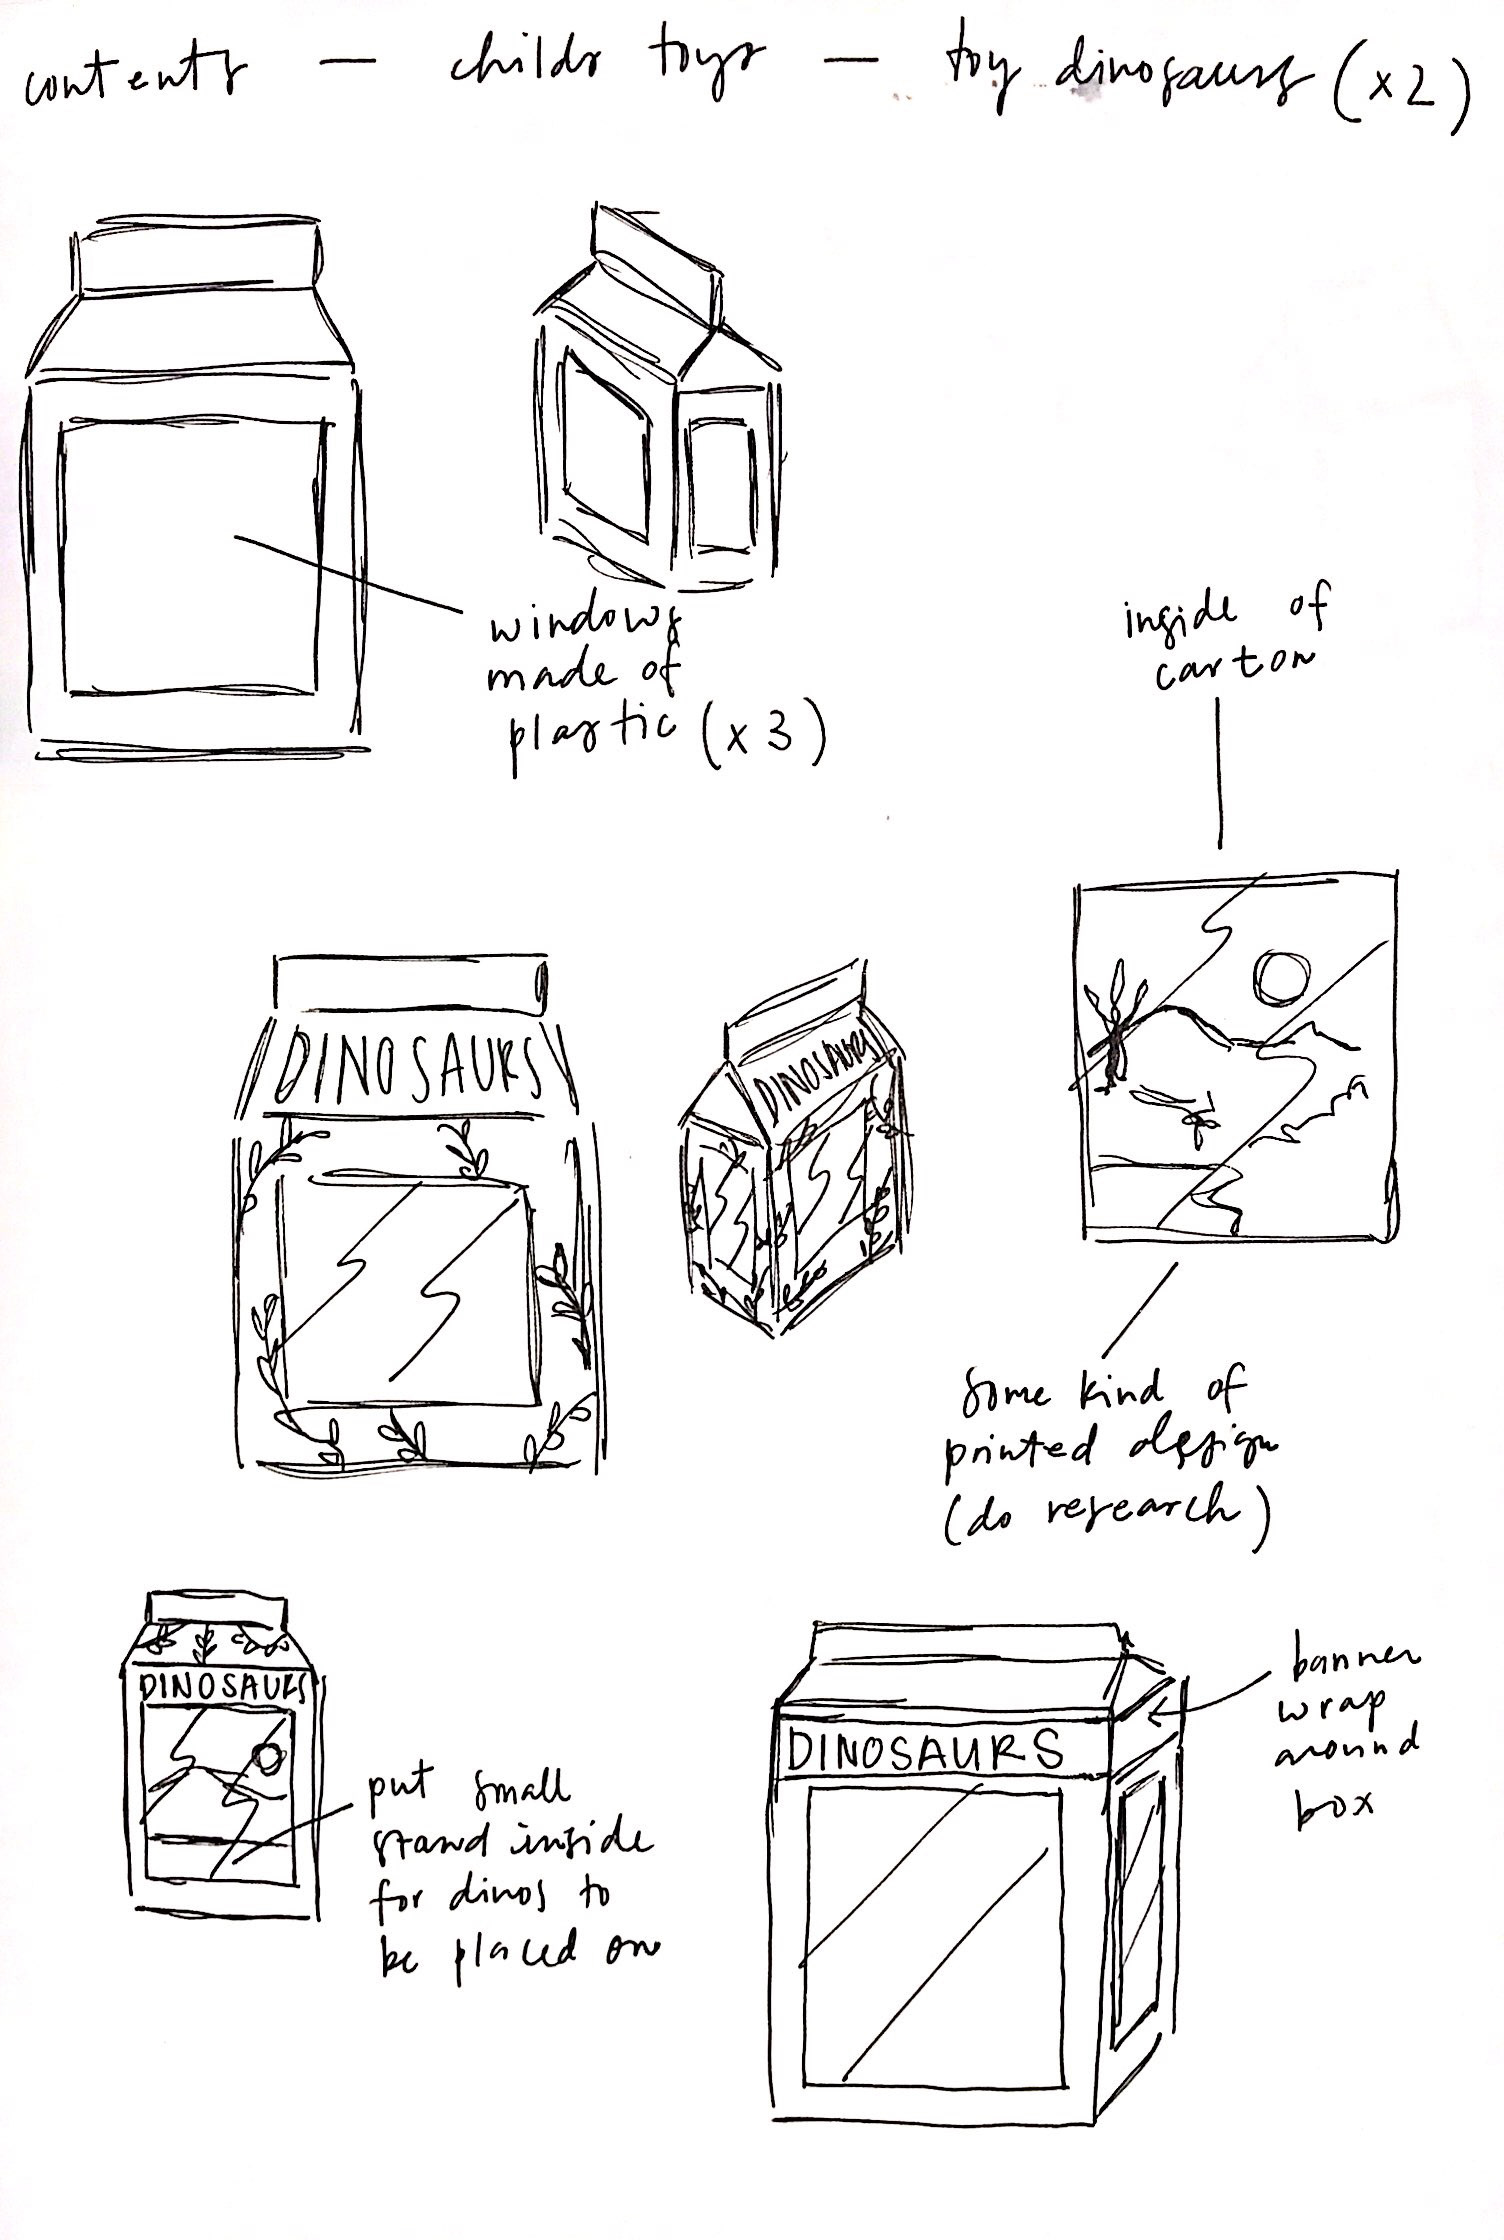 contents — childs toys — toy dinosaurs (x2)
windows
made of
plastic (x3)
inside of
carton
DINOSAURS
DINOSAURS
some kind of
printed design
(do research)
DINOSAURS
put small
stand inside
for dinos to
be placed on
DINOSAURS
banner
wrap
around
box